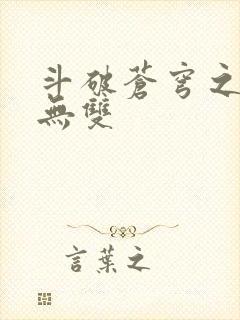 斗破蒼穹之
無雙
言葉之